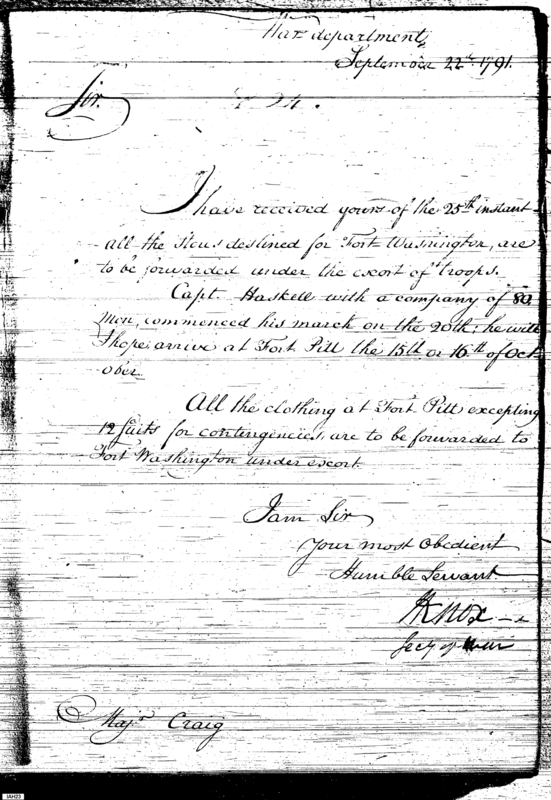 War department,
September 22d. 1791.
Sir.
24.
I have received yours of the 25th instant
all the destined for Fort Washington, are
to be forwarded under the escort of troops.
Capt. Haskell with a company of 80,
Men, commenced his march on the 20th; he will
I hope arrive at Fort Pitt the 15th. or 16th of Oct
ober.
All the clothing at Fort Pitt excepting
12 suits for contingencies, are to be forwarded to
Fort Washington under escort.
I am Sir
Your most Obedient
Humble Servant.
HKnox
Secy of War
Majr. Craig
IAH23